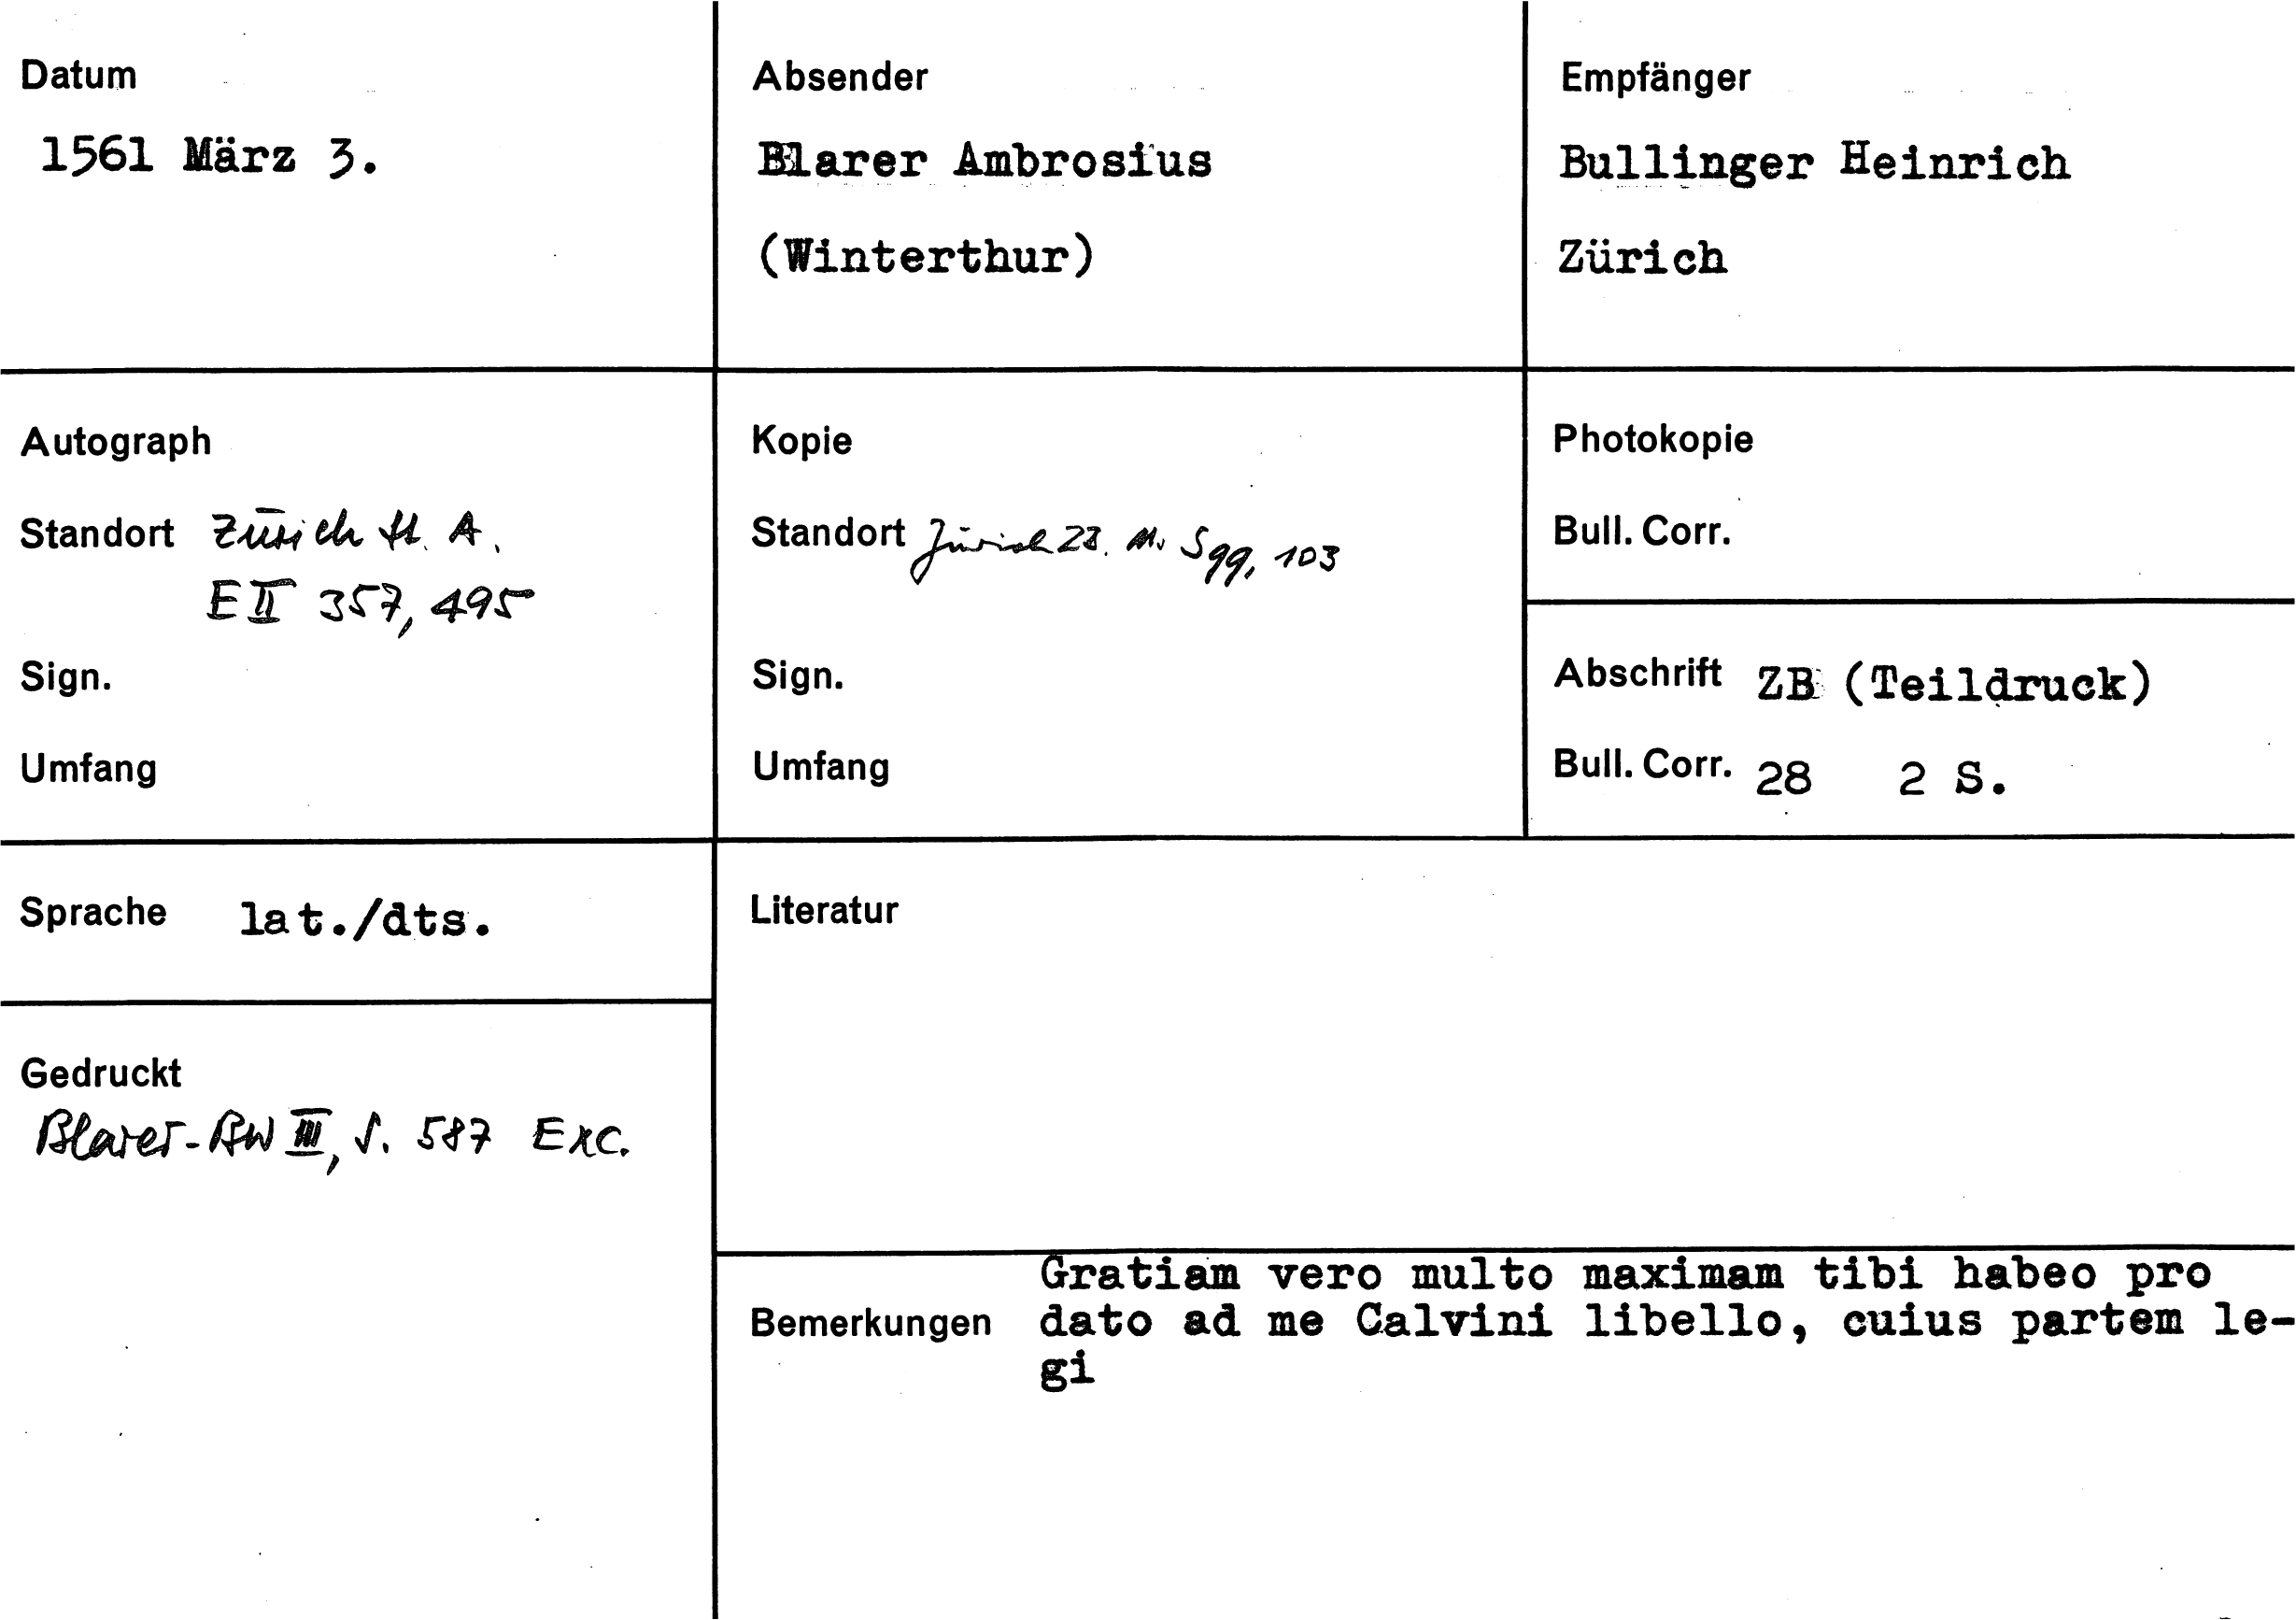 Datum
1561 März 3.
Absender
Blarer Ambrosius
(Winterthur)
Empfänger
Bullinger Heinrich
Zürich
Autograph
Standort Zürich St. A.
E II 357, 495
Sign.
Umfang
Kopie
Standort Zürich ZB. Ms S 99, 103
Sign.
Umfang
Photokopie
Bull. Corr.
Abschrift ZB (Teildruck)
Bull. Corr. 28 2 S.
Sprache lat./dts.
Literatur
Gedruckt
Blarer-BW III, S. 587 Exc.
Bemerkungen
Gratiam vero multo maximam tibi habeo pro
dato ad me Calvini libello, cuius partem le-
gi